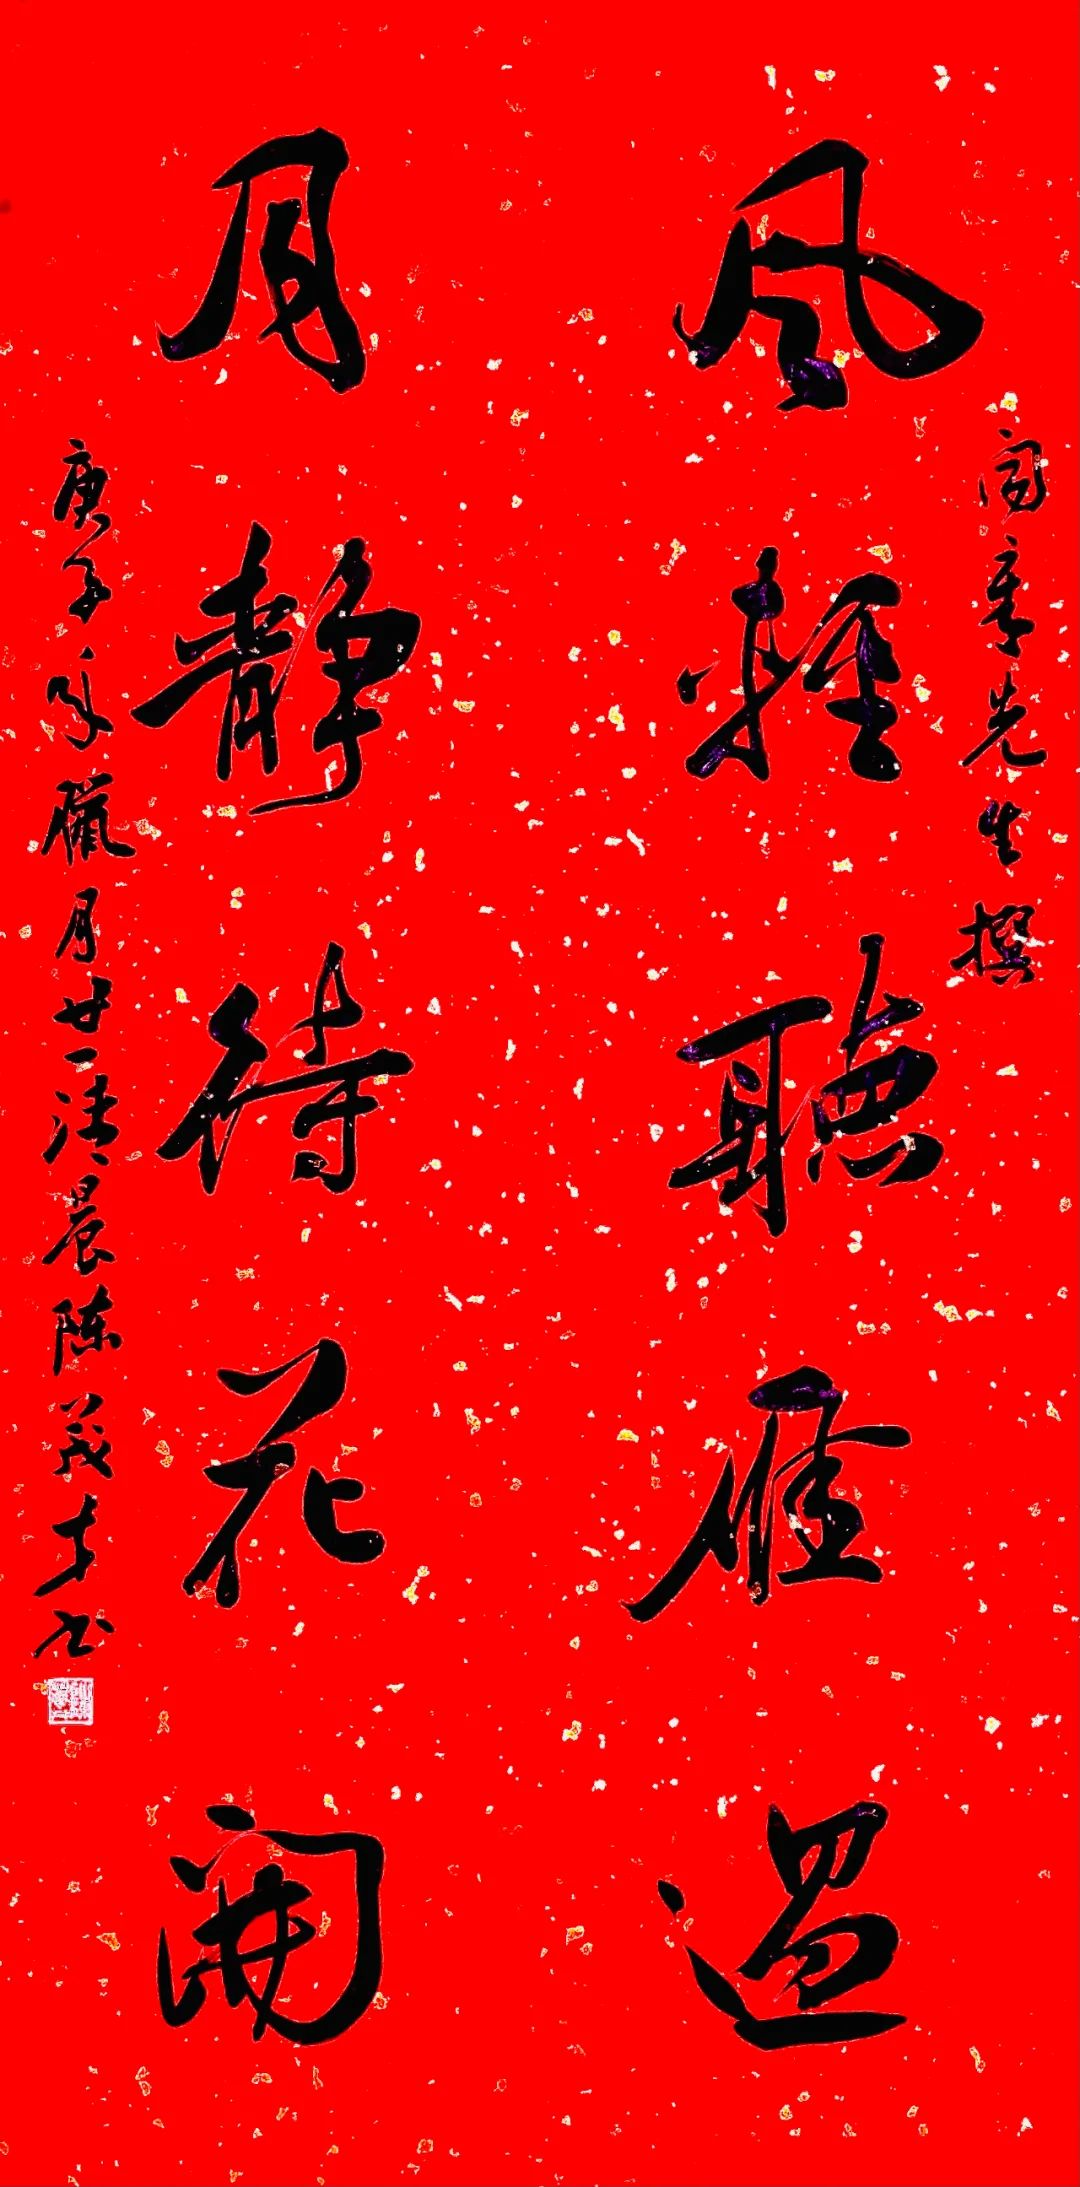 先生撰
風輕聽雁過
月靜待花開
庚子年臘月廿一清晨陈義才书